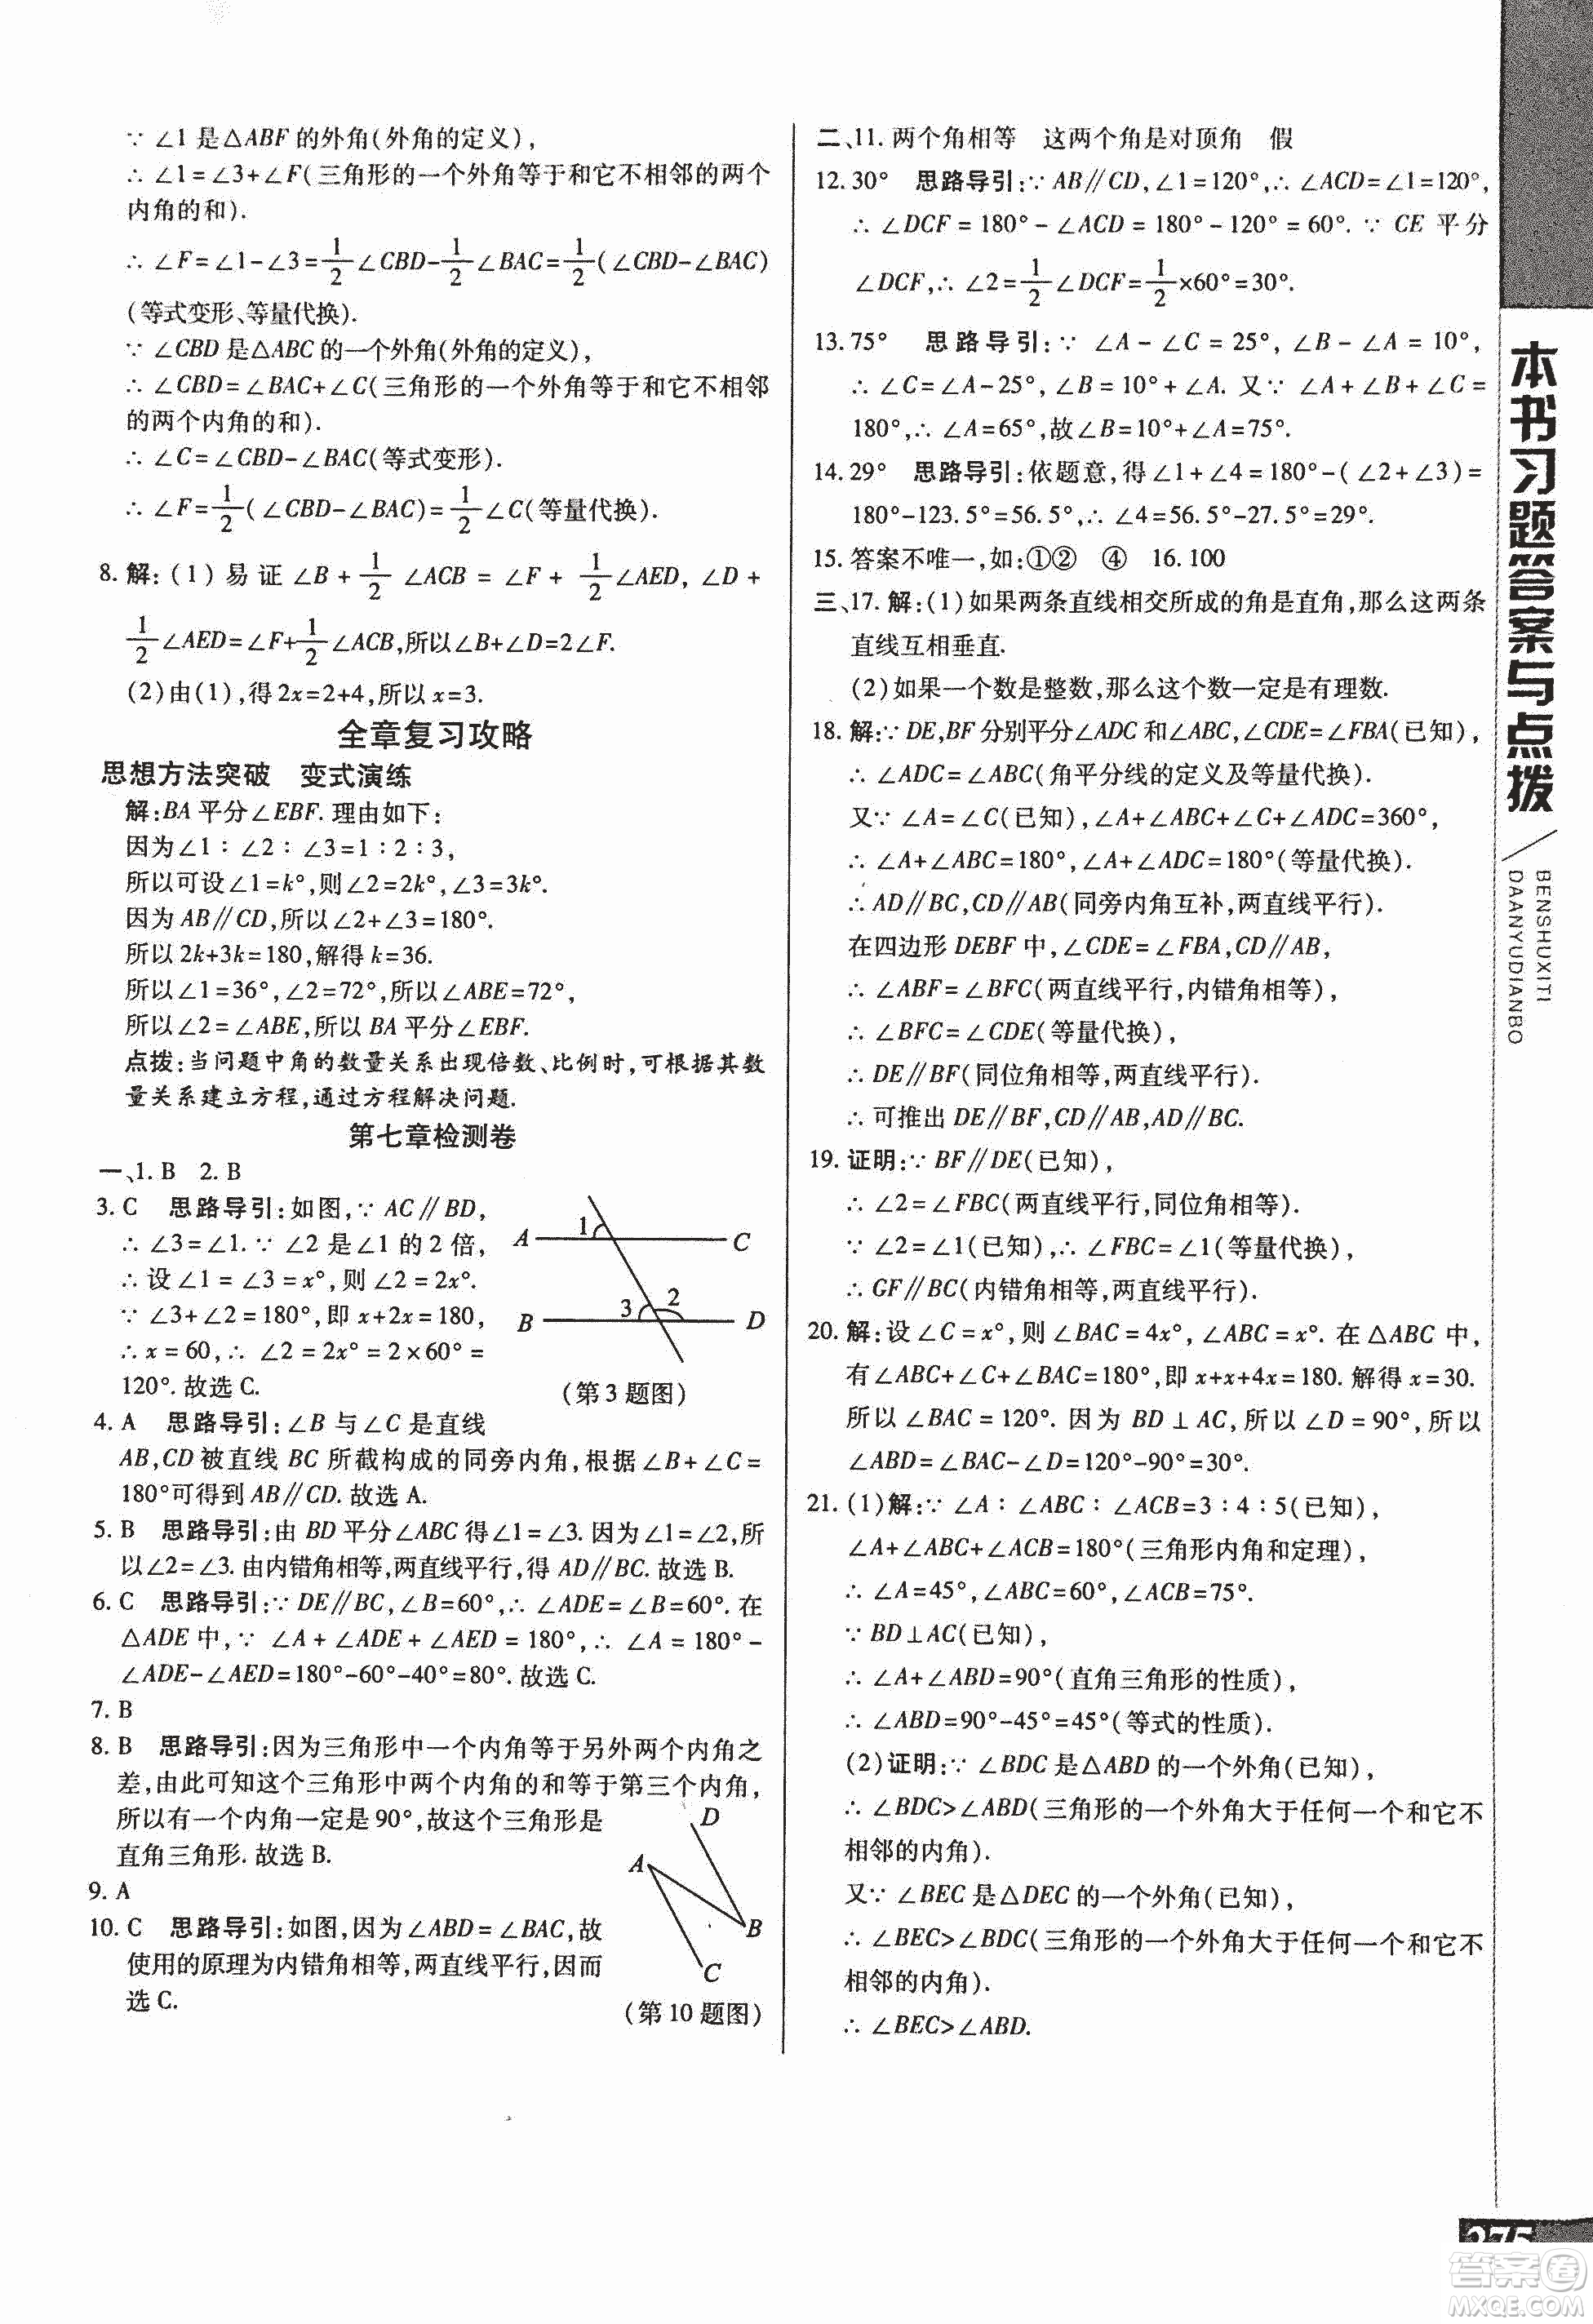 ∵ ∠1是△ABF的外角(外角的定义),
∴ ∠1=∠3+∠F(三角形的一个外角等于和它不相邻的两个
内角的和).
∴ ∠F=∠1-∠3=1/2∠CBD-1/2∠BAC=1/2(∠CBD-∠BAC)
(等式变形、等量代换).
∵ ∠CBD是△ABC的一个外角(外角的定义),
∴ ∠CBD=∠BAC+∠C(三角形的一个外角等于和它不相邻
的两个内角的和).
∴ ∠C=∠CBD-∠BAC(等式变形).
∴ ∠F=1/2(∠CBD-∠BAC)=1/2∠C(等量代换).
8. 解:(1)易证∠B+1/2∠ACB=∠F+1/2∠AED,∠D+
1/2∠AED=∠F+1/2∠ACB,所以∠B+∠D=2∠F.
(2)由(1),得2x=2+4,所以x=3.
全章复习攻略
思想方法突破 变式演练
解:BA平分∠EBF.理由如下:
因为∠1∶∠2∶∠3=1∶2∶3,
所以可设∠1=k°,则∠2=2k°,∠3=3k°.
因为AB∥CD,所以∠2+∠3=180°.
所以2k+3k=180,解得k=36.
所以∠1=36°,∠2=72°,所以∠ABE=72°,
所以∠2=∠ABE,所以BA平分∠EBF.
点拨:当问题中角的数量关系出现倍数、比例时,可根据其数
量关系建立方程,通过方程解决问题.
第七章检测卷
一、1. B 2. B
3. C 思路导引:如图,∵ AC∥BD,
∴ ∠3=∠1.∵ ∠2是∠1的2倍,
∴ 设∠1=∠3=x°,则∠2=2x°.
∵ ∠3+∠2=180°,即x+2x=180,
∴ x=60,∴ ∠2=2x°=2×60°=
120°.故选C.
A 1 C
B 3 2 D
(第3题图)
4. A 思路导引:∠B与∠C是直线
AB,CD被直线BC所截构成的同旁内角,根据∠B+∠C=
180°可得到AB∥CD.故选A.
5. B 思路导引:由BD平分∠ABC得∠1=∠3.因为∠1=∠2,所
以∠2=∠3.由内错角相等,两直线平行,得AD∥BC.故选B.
6. C 思路导引:∵ DE∥BC,∠B=60°,∴ ∠ADE=∠B=60°.在
△ADE中,∵ ∠A+∠ADE+∠AED=180°,∴ ∠A=180°-
∠ADE-∠AED=180°-60°-40°=80°.故选C.
7. B
8. B 思路导引:因为三角形中一个内角等于另外两个内角之
差,由此可知这个三角形中两个内角的和等于第三个内角,
所以有一个内角一定是90°,故这个三角形是
直角三角形.故选B.
9. A
10. C 思路导引:如图,因为∠ABD=∠BAC,故
使用的原理为内错角相等,两直线平行,因而
选C.
D
A
B
C
(第10题图)
二、11. 两个角相等 这两个角是对顶角 假
12. 30° 思路导引:∵ AB∥CD,∠1=120°,∴ ∠ACD=∠1=120°,
∴ ∠DCF=180°-∠ACD=180°-120°=60°.∵ CE平分
∠DCF,∴ ∠2=1/2∠DCF=1/2×60°=30°.
13. 75° 思路导引:∵ ∠A-∠C=25°,∠B-∠A=10°,
∴ ∠C=∠A-25°,∠B=10°+∠A.又∵ ∠A+∠B+∠C=
180°,∴ ∠A=65°,故∠B=10°+∠A=75°.
14. 29° 思路导引:依题意,得∠1+∠4=180°-(∠2+∠3)=
180°-123.5°=56.5°,∴ ∠4=56.5°-27.5°=29°.
15. 答案不唯一,如:①② ④ 16. 100
三、17. 解:(1)如果两条直线相交所成的角是直角,那么这两条
直线互相垂直.
(2)如果一个数是整数,那么这个数一定是有理数.
18. 解:∵ DE,BF分别平分∠ADC和∠ABC,∠CDE=∠FBA(已知),
∴ ∠ADC=∠ABC(角平分线的定义及等量代换).
又∵ ∠A=∠C(已知),∠A+∠ABC+∠C+∠ADC=360°,
∴ ∠A+∠ABC=180°,∠A+∠ADC=180°(等量代换).
∴ AD∥BC,CD∥AB(同旁内角互补,两直线平行).
在四边形DEBF中,∠CDE=∠FBA,CD∥AB,
∴ ∠ABF=∠BFC(两直线平行,内错角相等),
∴ ∠BFC=∠CDE(等量代换),
∴ DE∥BF(同位角相等,两直线平行).
∴ 可推出DE∥BF,CD∥AB,AD∥BC.
19. 证明:∵ BF∥DE(已知),
∴ ∠2=∠FBC(两直线平行,同位角相等).
∵ ∠2=∠1(已知),∴ ∠FBC=∠1(等量代换),
∴ GF∥BC(内错角相等,两直线平行).
20. 解:设∠C=x°,则∠BAC=4x°,∠ABC=x°.在△ABC中,
有∠ABC+∠C+∠BAC=180°,即x+x+4x=180.解得x=30.
所以∠BAC=120°.因为BD⊥AC,所以∠D=90°,所以
∠ABD=∠BAC-∠D=120°-90°=30°.
21. (1)解:∵ ∠A∶∠ABC∶∠ACB=3∶4∶5(已知),
∠A+∠ABC+∠ACB=180°(三角形内角和定理),
∴ ∠A=45°,∠ABC=60°,∠ACB=75°.
∵ BD⊥AC(已知),
∴ ∠A+∠ABD=90°(直角三角形的性质),
∴ ∠ABD=90°-45°=45°(等式的性质).
(2)证明:∵ ∠BDC是△ABD的一个外角(已知),
∴ ∠BDC>∠ABD(三角形的一个外角大于任何一个和它不
相邻的内角).
又∵ ∠BEC是△DEC的一个外角(已知),
∴ ∠BEC>∠BDC(三角形的一个外角大于任何一个和它不
相邻的内角).
∴ ∠BEC>∠ABD.
本书习题答案与点拨
BENSHUXITI
DAANYUDIANBO
275
答案圈
MXQE.COM